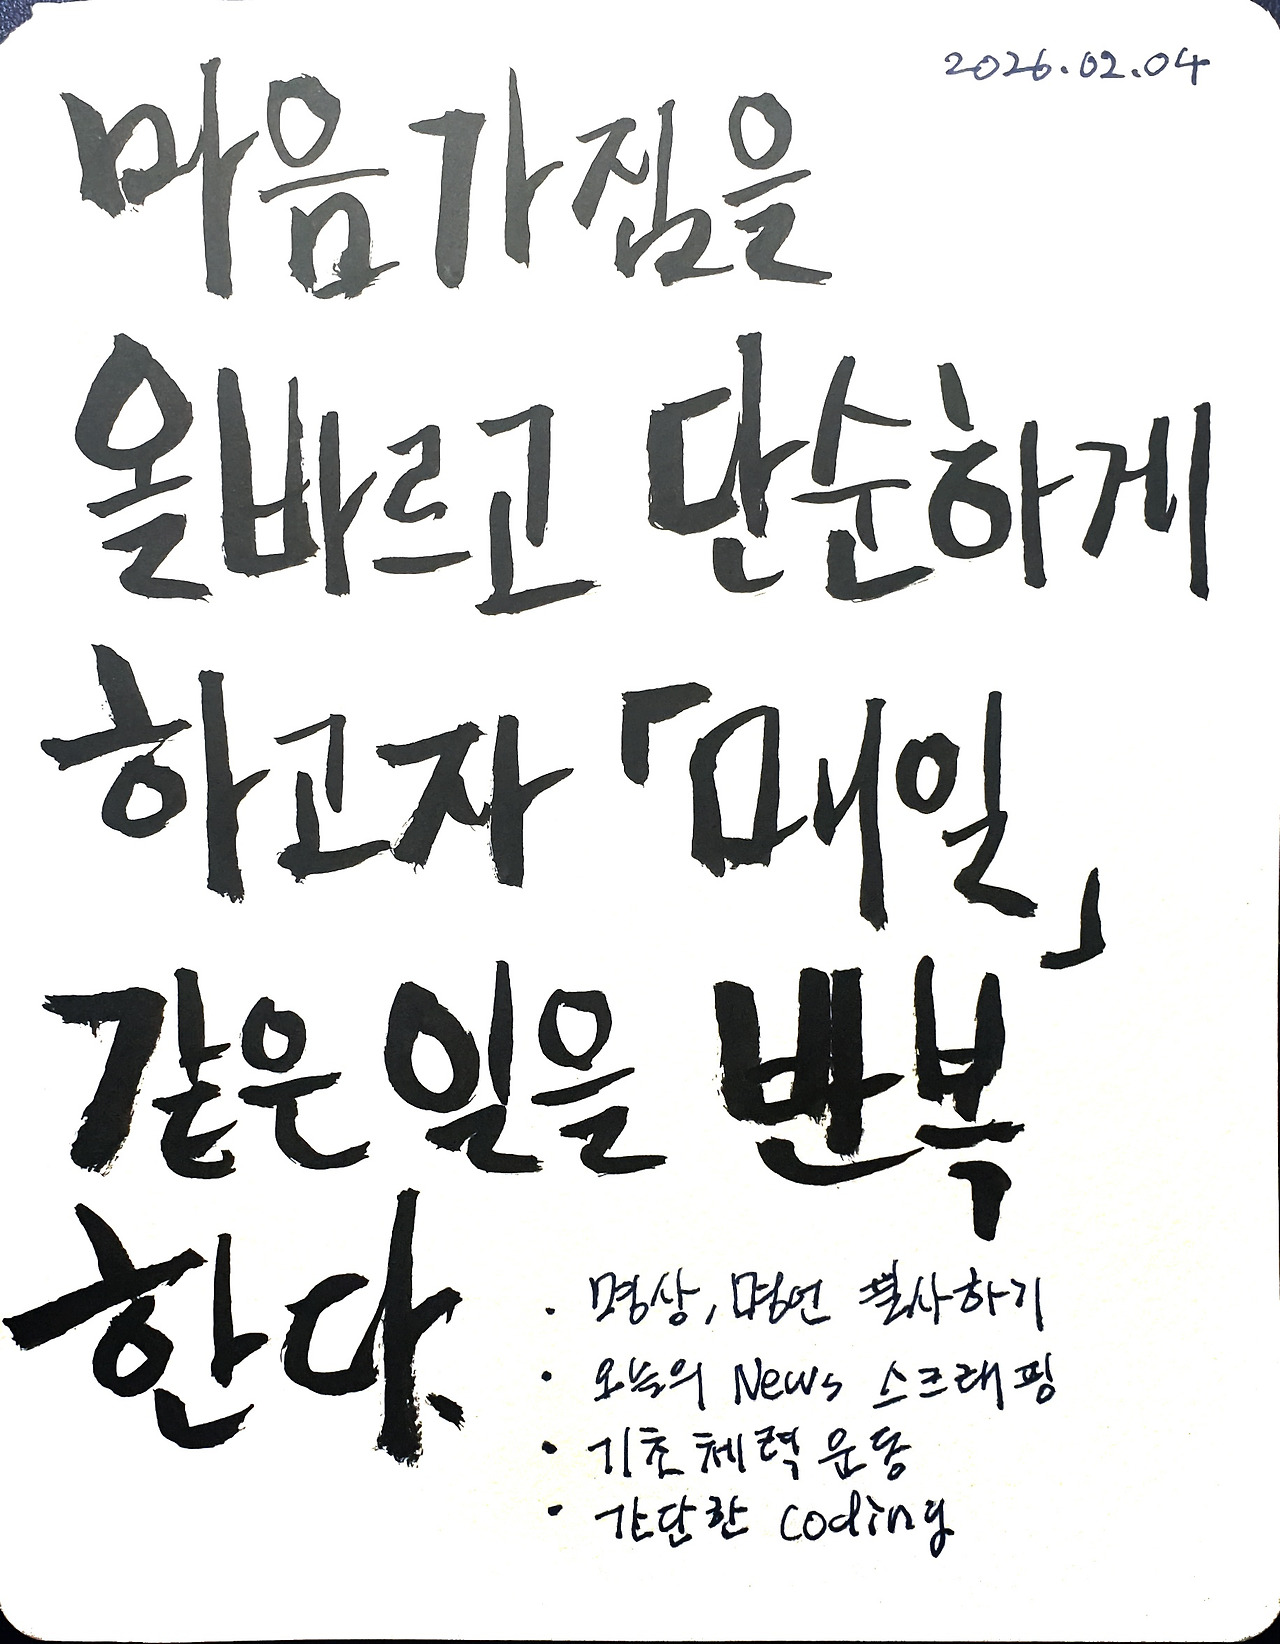 2026.02.04
마음가짐을
올바르고 단순하게
하고자 「매일」
같은 일을 반복
한다.
· 명상, 명언 필사하기
· 오늘의 News 스크래핑
· 기초체력 운동
· 간단한 coding